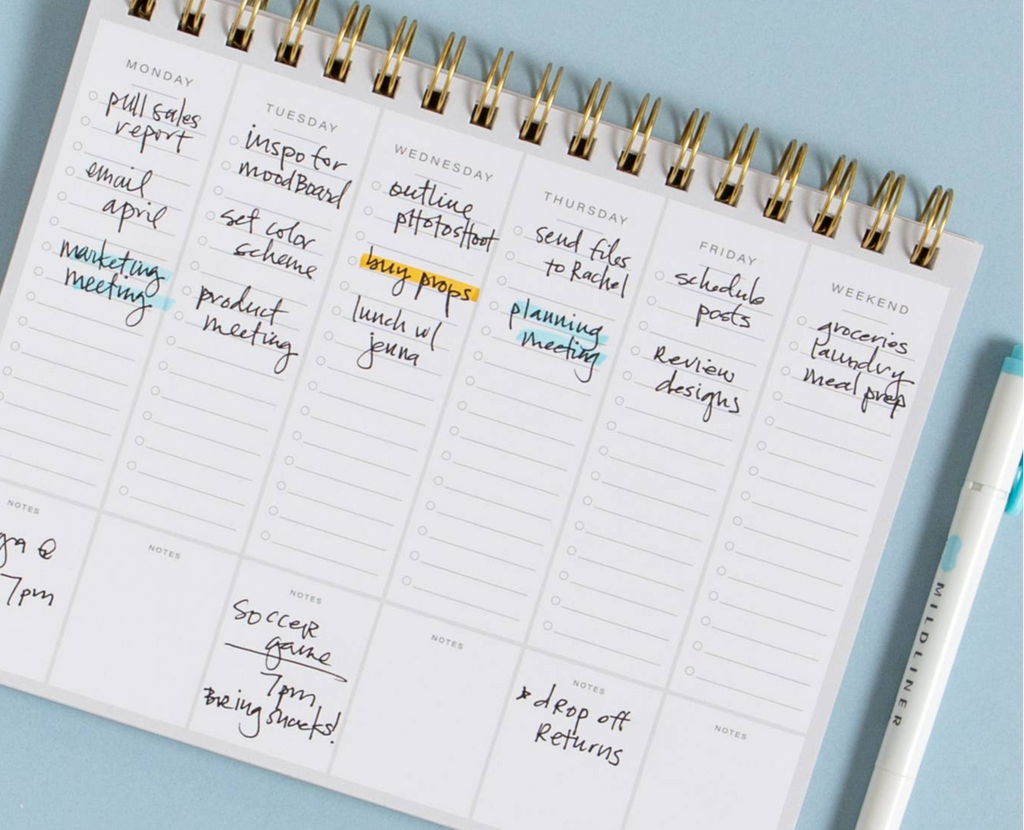 MONDAY
pull sales
report
email
april
marketing
meeting
TUESDAY
inspo for
moodBoard
set color
scheme
product
meeting
WEDNESDAY
outline
pHotosHoot
buy props
lunch w/
jenna
THURSDAY
send files
to Rachel
planning
meeting
FRIDAY
schedule
posts
Review
designs
WEEKEND
groceries
laundry
meal prep
NOTES
7pm
NOTES
NOTES
SOCCER
game
7pm
BRing snacks!
NOTES
NOTES
* dROp off
Returns
NOTES
MILDLINER